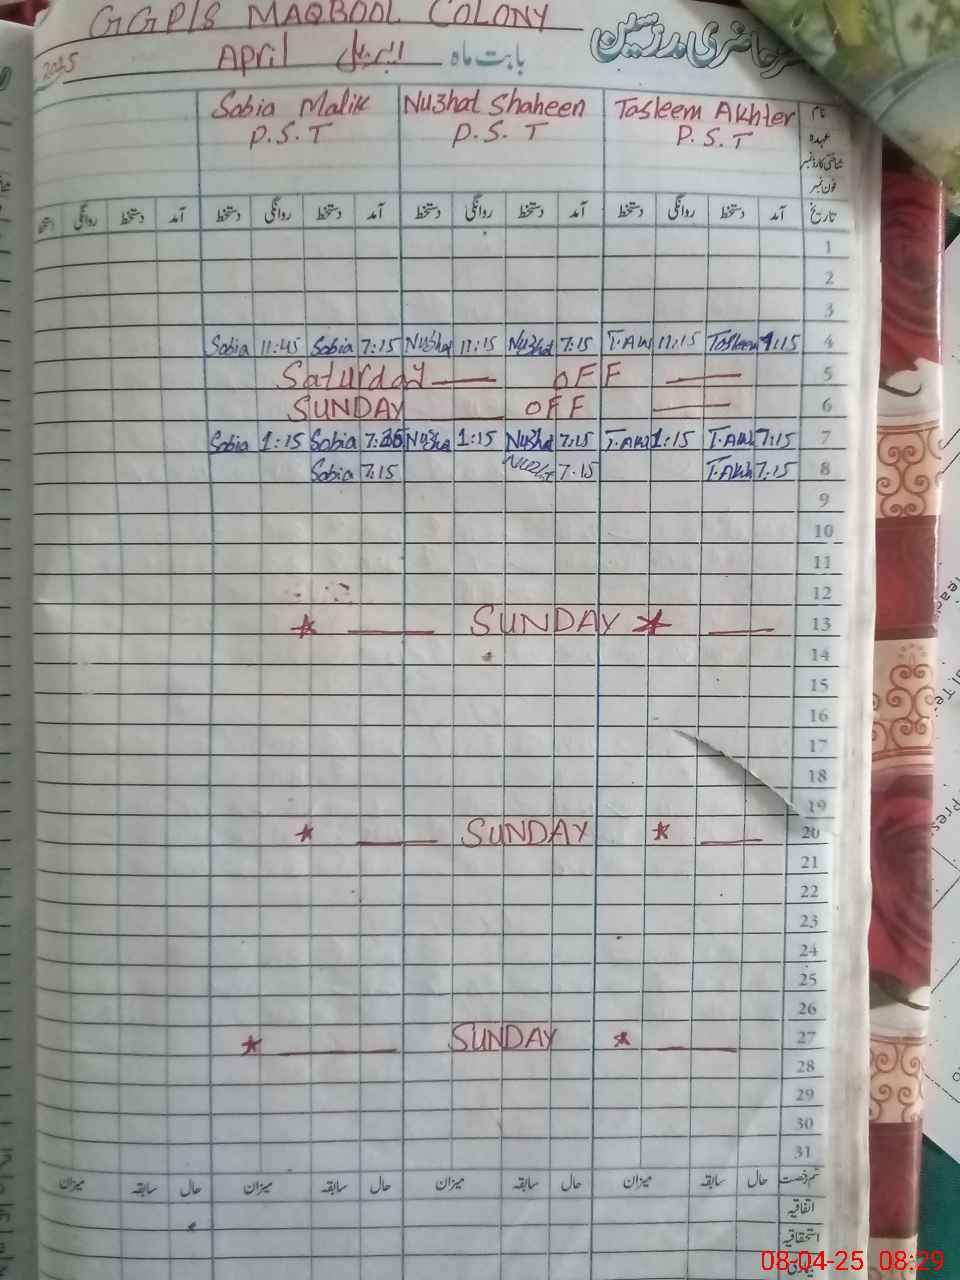 GGP/S MAQBOOL COLONY
حاضری مدرسین
بابت ماہ اپریل April 2025
نام Tasleem Akhter Nuzhat Shaheen Sabia Malik
عہدہ P.S.T P.S.T P.S.T
شناختی کارڈ نمبر
فون نمبر
تاریخ آمد دستخط روانگی دستخط آمد دستخط روانگی دستخط آمد دستخط روانگی دستخط آمد دستخط روانگی
1
2
3
Sabia 11:45 Sabia 7:15 Nuzhat 11:15 Nuzhat 7:15 T.AKH 11:15 Tasleem 7:15 4
Saturday — OFF — 5
SUNDAY — OFF — 6
Sabia 1:15 Sabia 7:15 Nuzhat 1:15 Nuzhat 7:15 T.AKH 1:15 T.AKH 7:15 7
Sabia 7:15 Nuzhat 7:15 T.AKH 7:15 8
9
10
11
12
* — SUNDAY * — 13
14
15
16
17
18
19
* — SUNDAY * — 20
21
22
23
24
25
26
* — SUNDAY * — 27
28
29
30
31
قسم رخصت حال سابقہ میزان حال سابقہ میزان حال سابقہ میزان حال سابقہ میزان
اتفاقیہ
استحقاقیہ
08-04-25 08:29